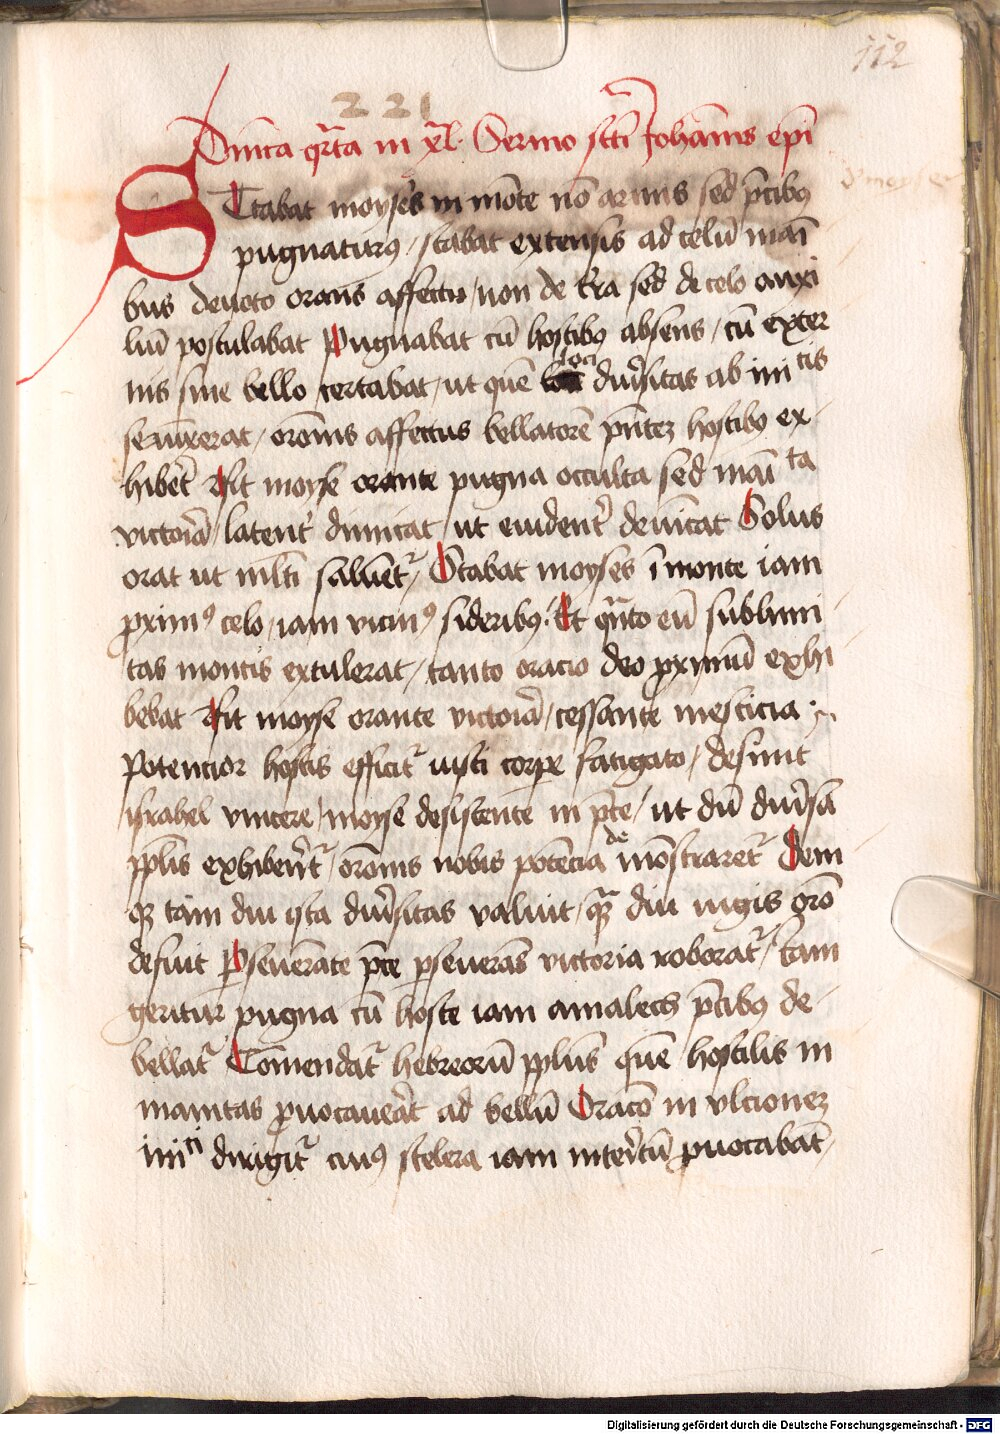 112
221
Dmīca qrta in xl. Sermo scti Johānis epi
d moyses
Stabat moyses in mōte nō armis sed p̄cibꝰ
pugnaturꝰ / stabat extensis ad celū mani
bus deuoto orans affectu / non de t̄ra sed de celo auxi
liū postulabat Pugnabat cū hostibꝰ absens / cū exter
nis sine bello certabat / ut quē loci diu̅sitas ab inicis
seiunxerat / orōnis affectus bellatorē p̄ntez hostibꝰ ex-
hibēt Fit moyse orante pugna occulta sed mani ta
victoria / latent̄ dimicat / ut euident̄ deuincat Solus
orat ut mlti saluēt̄ / Stabat moyses ī monte iam
ꝓximꝰ celo / iam vicinꝰ sideribꝰ. Et q̄nto eū sublimi
tas montis extulerat / tanto oracio deo ꝓximū exhi
bebat Fit moyse orante victoria / cessante mesticia
Potencior hostis efficit̄ iusti corpe fatigato / desinit
israhel vincere / moyse desistente in p̄ce / ut dū diu̅sa
pplis exhibent̄ / orōnis nobis potēcia de mōstraret̄ Dem
qꝫ tam diu ista diu̅sitas valuit / q̄ diu iugis orō
defuit Pseuerāte p̄ce pseuerās victoria roborat̄ / tam
geritur pugna cū hoste iam amalech p̄cibꝰ de-
bellat̄ Comendat̄ hebreorū pplus quē hostilis in
manitas ꝓuocauerat ad bellū Oracō in vlcionez
inici dirigit̄ cuiꝰ scelera iam interitū ꝓuocabāt /
Digitalisierung gefördert durch die Deutsche Forschungsgemeinschaft - DFG